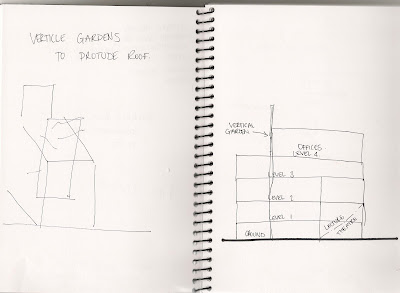 VERTICLE GARDENS
TO PROTUDE ROOF.
VERTICAL
GARDEN
OFFICES
LEVEL 4
LEVEL 3
LEVEL 2
LEVEL 1
GROUND
LECTURE
THEATRE